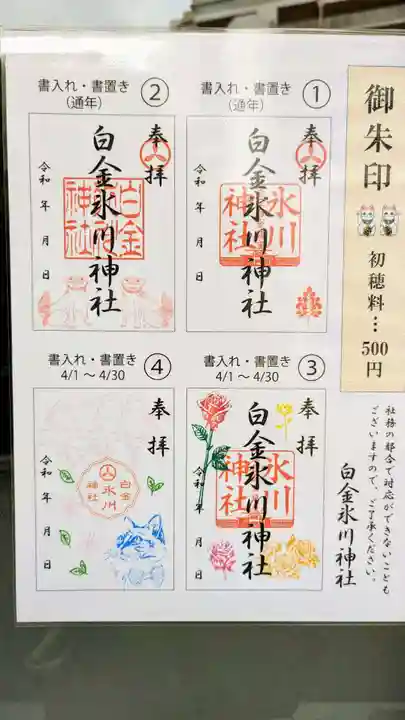 御朱印
初穂料…
500円
社務の都合で対応ができないことも
ございますので、ご了承ください。
白金氷川神社
書入れ・書置き
(通年)
①
奉拝
白金氷川神社
氷川
神社
令和 年 月 日
書入れ・書置き
(通年)
②
奉拝
白金氷川神社
白金
神社
令和 年 月 日
書入れ・書置き
4/1 ～ 4/30
③
奉拝
白金氷川神社
氷川
神社
令和 年 月 日
書入れ・書置き
4/1 ～ 4/30
④
奉拝
白金
氷川
神社
令和 年 月 日